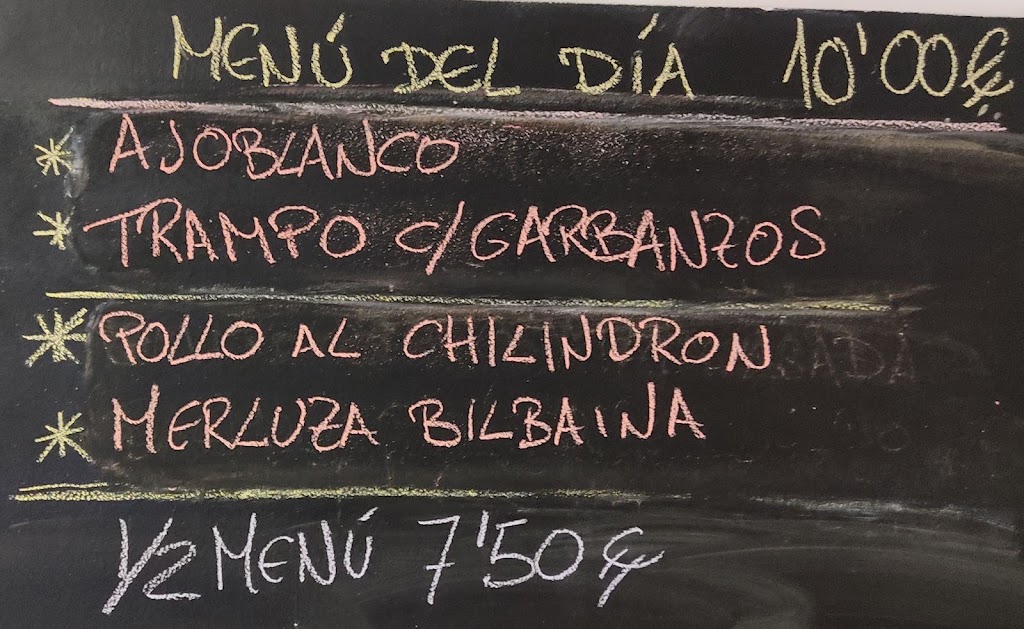 MENÚ DEL DÍA 10'00€
* AJOBLANCO
* TRAMPO c/GARBANZOS
* POLLO AL CHILINDRON
* MERLUZA BILBAINA
1/2 MENÚ 7'50€